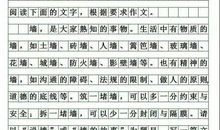 阅读下面的文字，根据要求作文。
墙，是大家熟知的事物。生活中有物质的
墙，如土墙、砖墙、人墙、篱笆墙、玻璃墙、
花墙、城墙、防火墙、影壁墙等，也有精神的
墙，如沟通的障碍、法规的限制、做人的原则、
道德的底线等。筑一堵墙，可以多一分约束与
安全；拆一堵墙，可以少一分封闭与隔膜。请